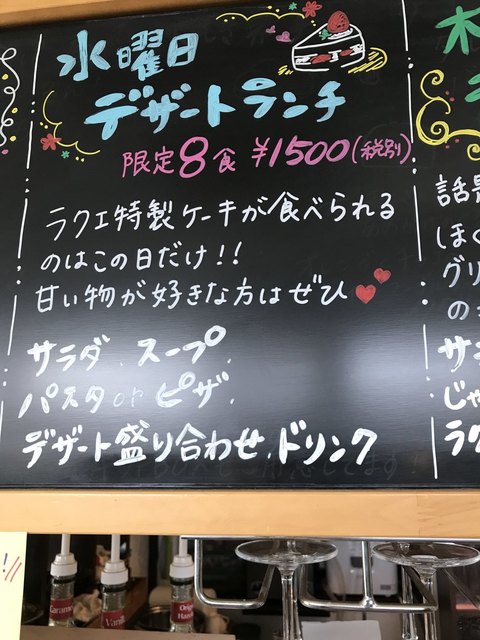 水曜日
デザートランチ
限定8食 ¥1500(税別)
ラクエ特製ケーキが食べられる
のはこの日だけ!!
甘い物が好きな方はぜひ
サラダ、スープ、
パスタorピザ、
デザート盛り合わせ、ドリンク
木
話題
ほく
グリ
の
サ
じゃ
ラク
!!
Caramel
Vanil
Origi
Hazel